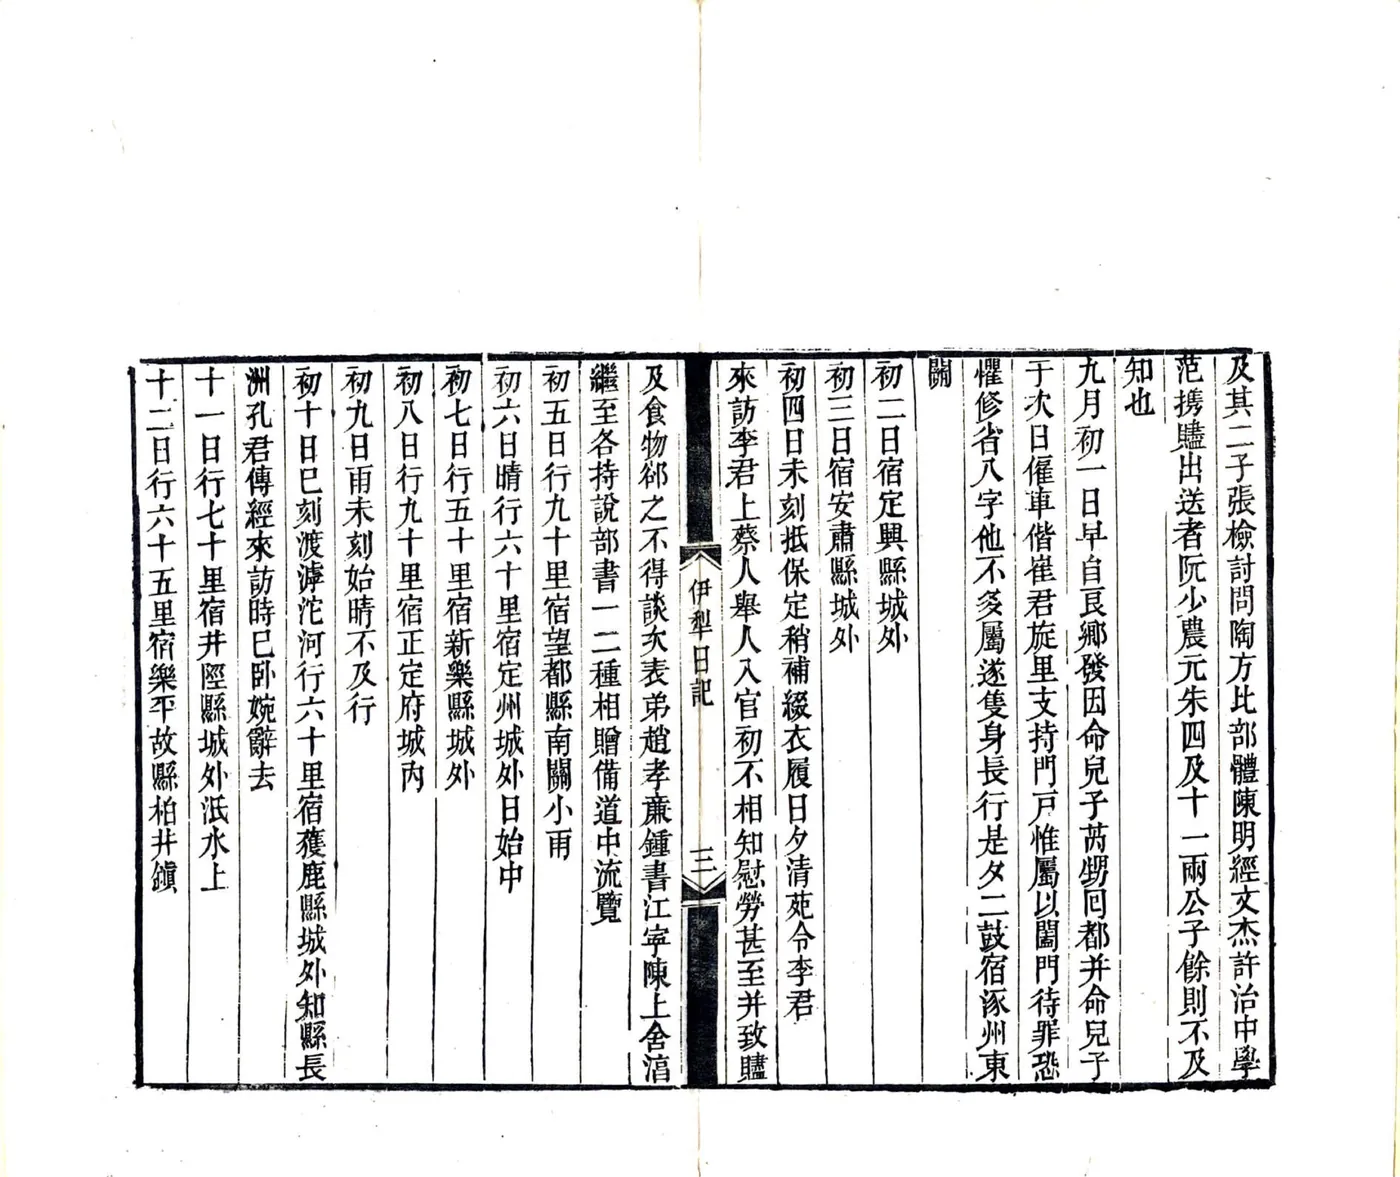 及其二子張檢討問陶方比部體陳明經文杰許治中學
范攜贐出送者阮少農元朱四及十一兩公子餘則不及
知也
九月初一日早自良鄉發因命兒子芮甥囘都并命兒子
于次日僱車偕崔君旋里支持門戸惟屬以闔門待罪恐
懼修省八字他不多屬遂隻身長行是夕二鼓宿涿州東
關
初二日宿定興縣城外
初三日宿安肅縣城外
初四日未刻抵保定稍補綴衣履日夕清苑令李君
來訪李君上蔡人舉人入官初不相知慰勞甚至并致贐
伊犁日記
三
及食物郤之不得談次表弟趙孝廉鍾書江寧陳上舍㵆
繼至各持說部書一二種相贈備道中流覽
初五日行九十里宿望都縣南關小雨
初六日晴行六十里宿定州城外日始中
初七日行五十里宿新樂縣城外
初八日行九十里宿正定府城內
初九日雨未刻始晴不及行
初十日巳刻渡滹沱河行六十里宿獲鹿縣城外知縣長
洲孔君傳經來訪時巳卧婉辭去
十一日行七十里宿井陘縣城外泜水上
十二日行六十五里宿樂平故縣柏井鎭